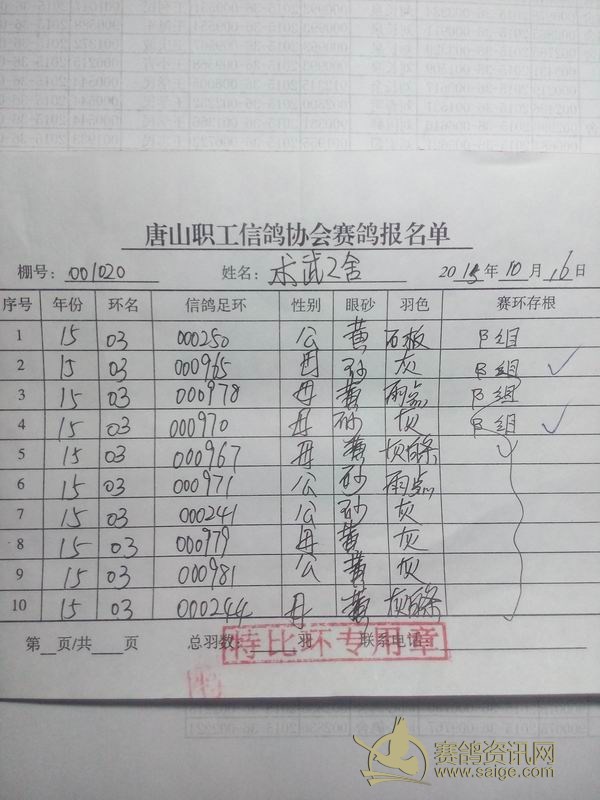 唐山职工信鸽协会赛鸽报名单
棚号: 001020 姓名: 术武之舍 2015年10月16日
序号 年份 环名 信鸽足环 性别 眼砂 羽色 赛环存根
1 15 03 000250 公 黄 石板 B组
2 15 03 000965 母 砂 灰 B组 ✓
3 15 03 000978 母 黄 雨点 B组
4 15 03 000970 母 砂 灰 B组 ✓
5 15 03 000967 母 黄 灰白条
6 15 03 000971 公 砂 雨点
7 15 03 000241 公 砂 灰
8 15 03 000979 母 黄 灰
9 15 03 000981 公 黄 灰
10 15 03 000244 母 黄 灰白条
第__页/共__页 总羽数:____羽 联系电话:
特比环专用章
特
赛鸽资讯网
www.saige.com